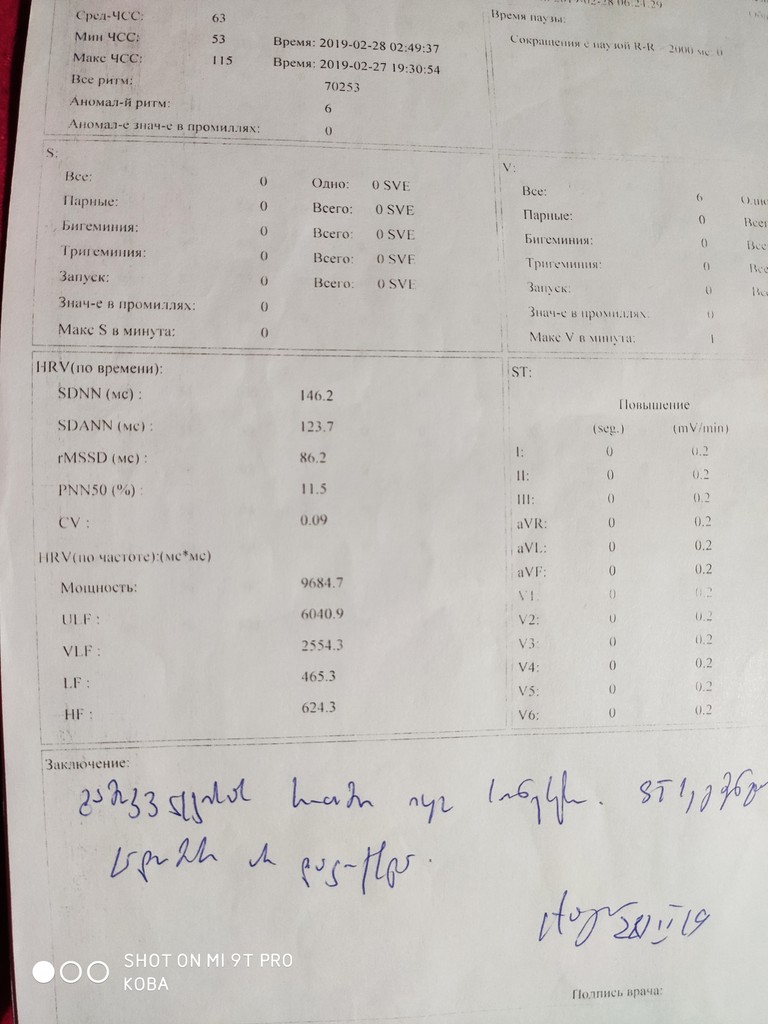 Сред-ЧСС: 63
Мин ЧСС: 53 Время: 2019-02-28 02:49:37
Макс ЧСС: 115 Время: 2019-02-27 19:30:54
Все ритм: 70253
Аномал-й ритм: 6
Аномал-е знач-е в промиллях: 0
Время паузы:
Сокращения с паузой R-R > 2000 мс: 0
S:
Все: 0 Одно: 0 SVE
Парные: 0 Всего: 0 SVE
Бигеминия: 0 Всего: 0 SVE
Тригеминия: 0 Всего: 0 SVE
Запуск: 0 Всего: 0 SVE
Знач-е в промиллях: 0
Макс S в минута: 0
V:
Все: 6
Парные: 0
Бигеминия: 0
Тригеминия: 0
Запуск: 0
Знач-е в промиллях: 0
Макс V в минута: 1
HRV(по времени):
SDNN (мс) : 146.2
SDANN (мс) : 123.7
rMSSD (мс) : 86.2
PNN50 (%) : 11.5
CV : 0.09
HRV(по частоте):(мс*мс)
Мощность: 9684.7
ULF : 6040.9
VLF : 2554.3
LF : 465.3
HF : 624.3
ST:
Повышение
(seg.) (mV/min)
I: 0 0.2
II: 0 0.2
III: 0 0.2
aVR: 0 0.2
aVL: 0 0.2
aVF: 0 0.2
V1 0 0.2
V2: 0 0.2
V3: 0 0.2
V4: 0 0.2
V5: 0 0.2
V6: 0 0.2
Заключение:
ST
28/II 19
Подпись врача:
SHOT ON MI 9T PRO
KOBA